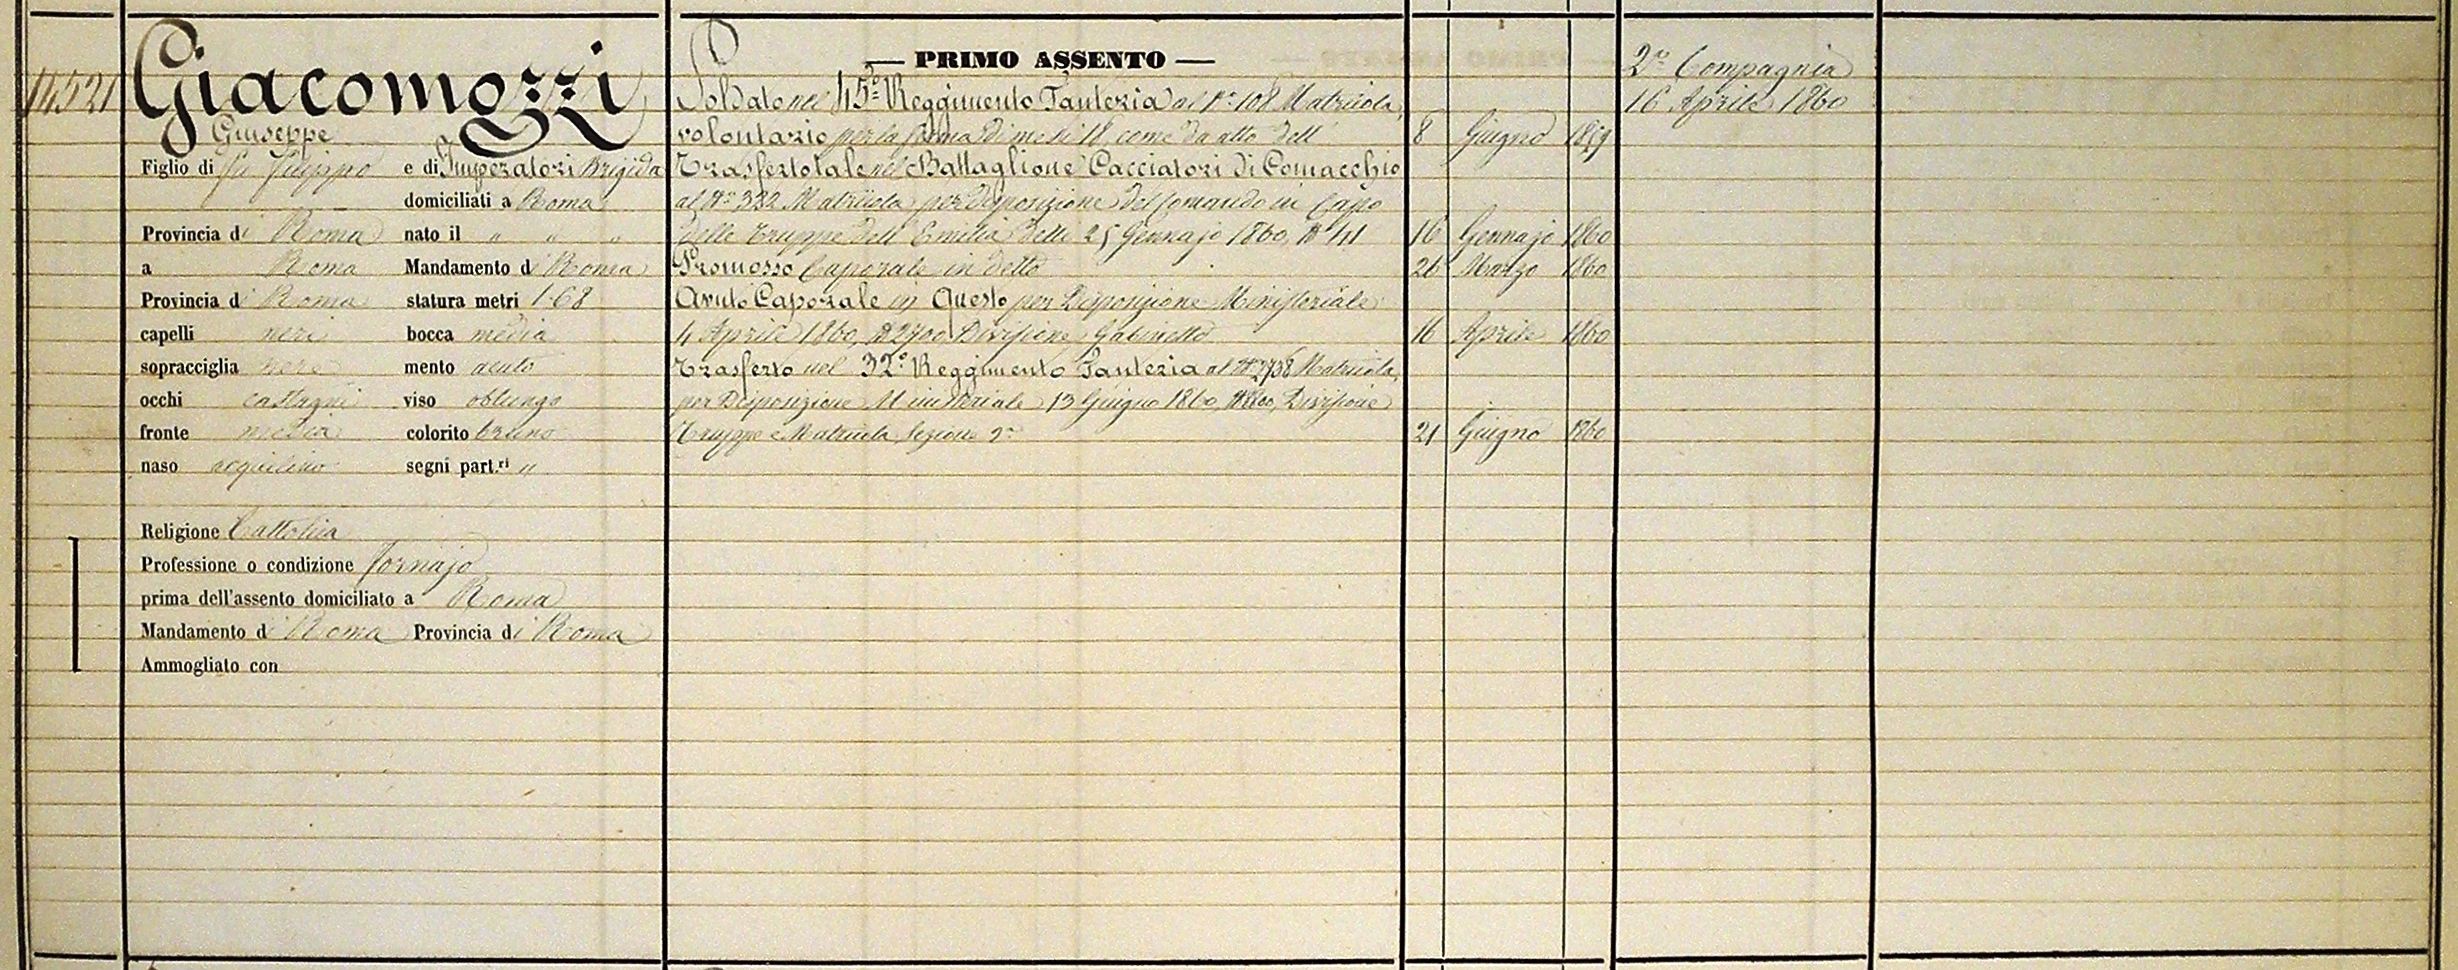 14521
Giacomozzi
Giuseppe
Figlio di fu Filippo e di Imperatori Brigida
domiciliati a Roma
Provincia di Roma nato il " " "
a Roma Mandamento di Roma
Provincia di Roma statura metri 1.68
capelli neri bocca media
sopracciglia nere mento acuto
occhi castagni viso oblungo
fronte media colorito bruno
naso acquilino segni part.ri "
Religione Cattolica
Professione o condizione Fornajo
prima dell'assento domiciliato a Roma
Mandamento di Roma Provincia di Roma
Ammogliato con
— PRIMO ASSENTO —
Soldato nel 45° Reggimento Fanteria al N° 108 Matricola,
volontario per la ferma di mesi 18, come da atto dell' 8 Giugno 1859
Trasferto tale nel Battaglione Cacciatori di Comacchio
al N° 332 Matricola per disposizione del Comando in Capo
delle Truppe dell'Emilia delli 25 Gennajo 1860, N° 141 16 Gennajo 1860
Promosso Caporale in detto 26 Marzo 1860
Avuto Caporale in Questo per Disposizione Ministeriale
4 Aprile 1860, N° 2700 Divisione Gabinetto 16 Aprile 1860
Trasferto nel 32° Reggimento Fanteria al N° 2738 Matricola,
per Disposizione Ministeriale 13 Giugno 1860, Divisione
Truppe e Matricola, Sezione 2a 21 Giugno 1860
2a Compagnia
16 Aprile 1860